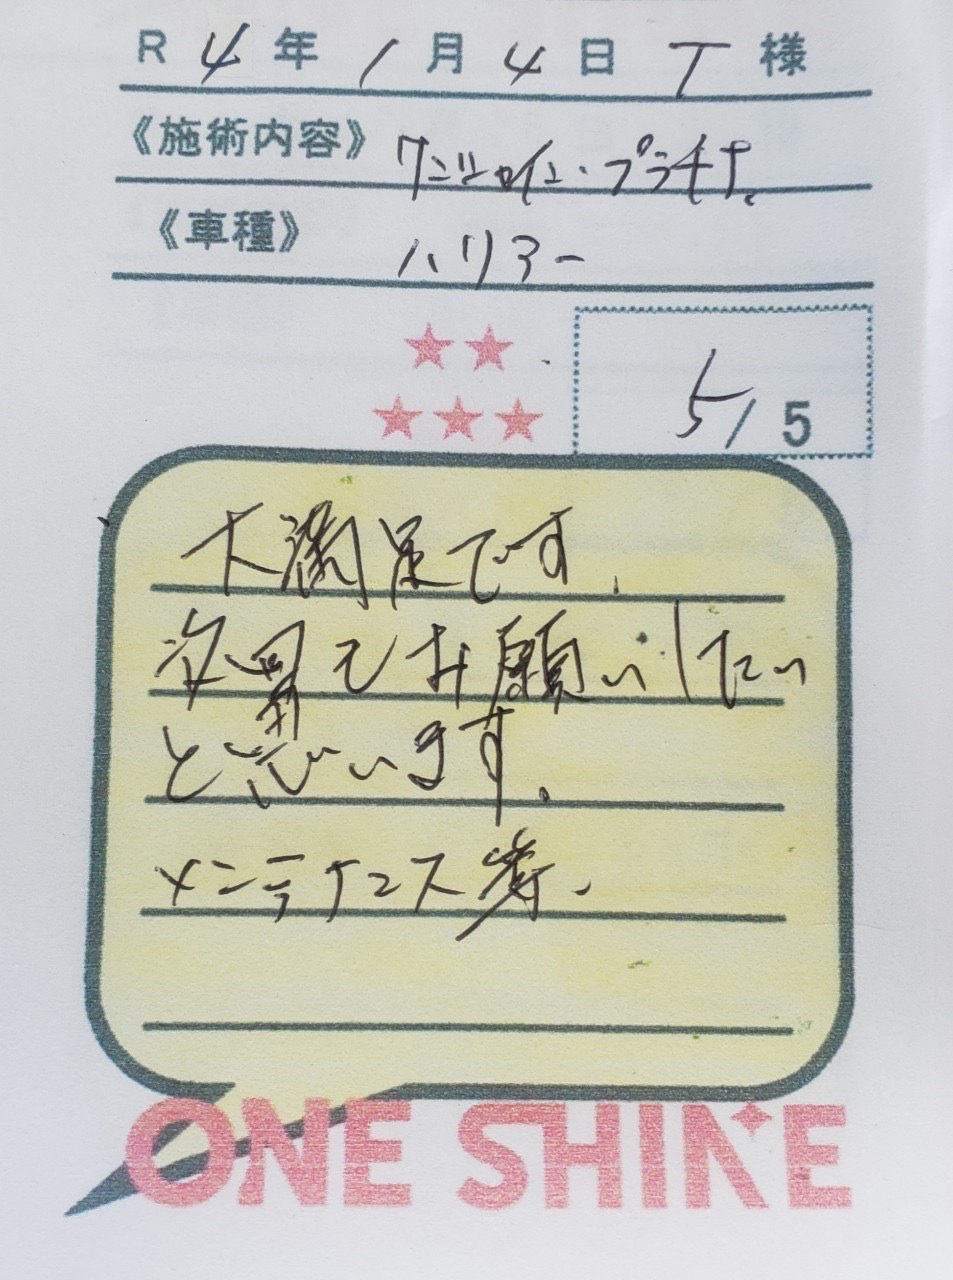 R 4年 1月4日 T 様
《施術内容》 ワンシャイン・プラチナ
《車種》 ハリアー
5/5
大満足です。
次買でもお願いしたい
と思います。
メンテナンス等、
ONE SHINE